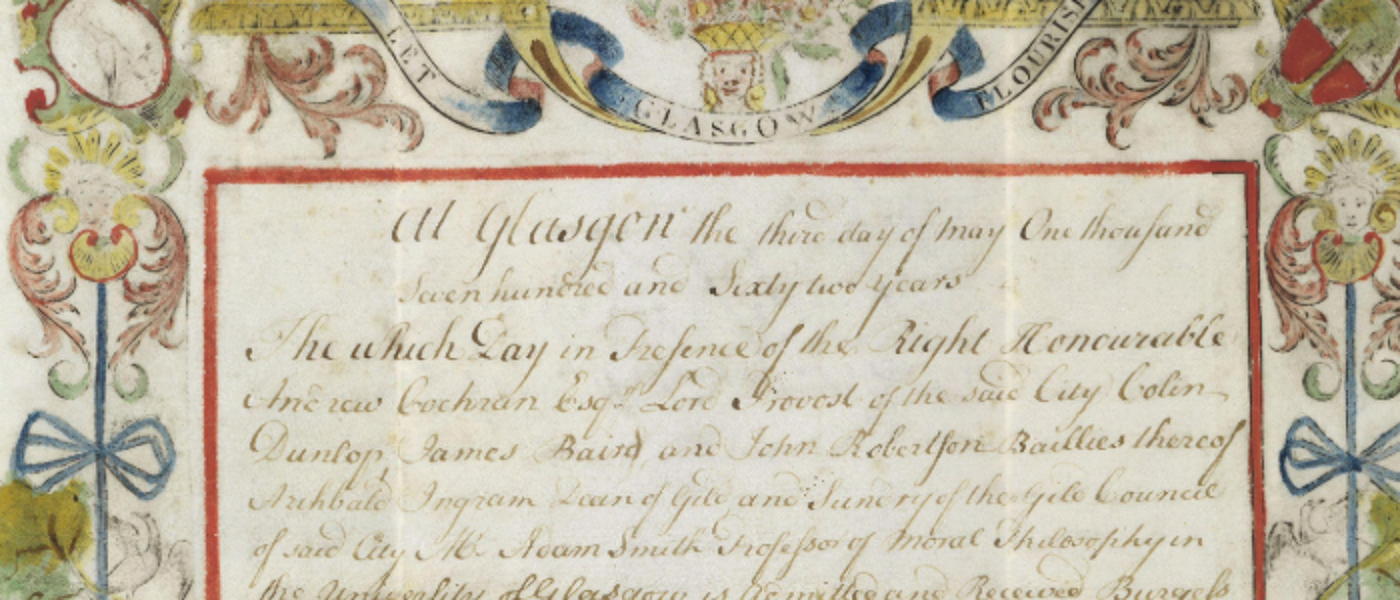 LET GLASGOW FLOURISH
At Glasgow the third day of May One thousand
Seven hundred and Sixty two years
The which Day in Presence of the Right Honourable
Andrew Cochran Esqr. Lord Provost of the said City Colin
Dunlop James Baird, and John Robertson Baillies thereof
Archbald Ingram Dean of Gild and Sundry of the Gild Council
of said City Mr. Adam Smith Professor of Moral Philosophy in
the University of Glasgow is Admitted and Received Burgess